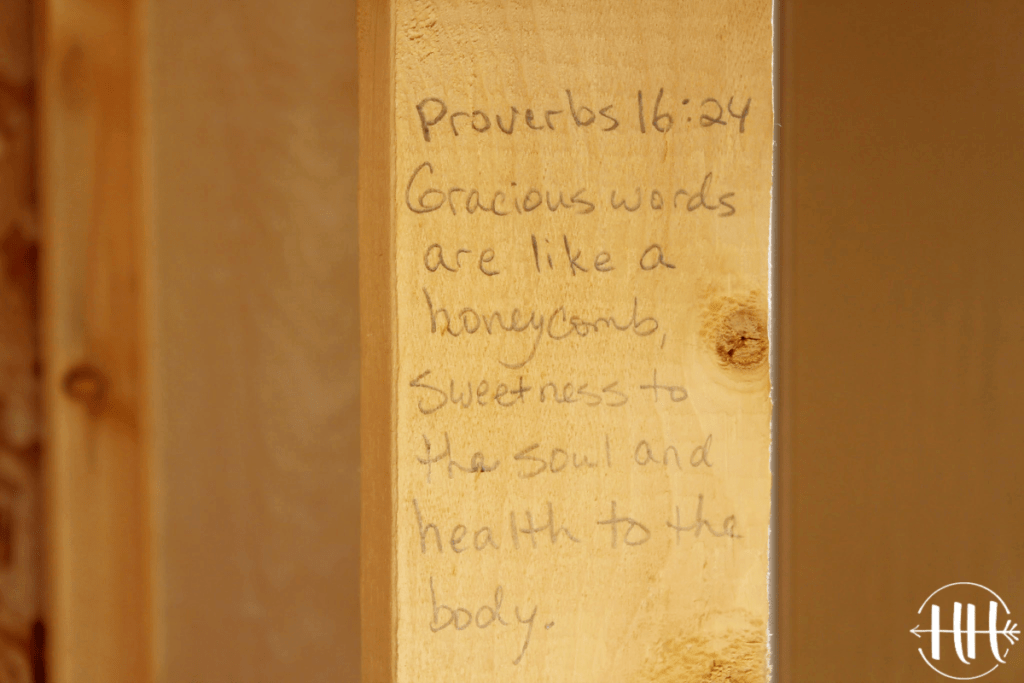 Proverbs 16:24
Gracious words
are like a
honeycomb,
sweetness to
the soul and
health to the
body.
HH